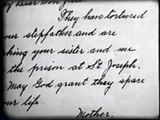 My dear son
They have tortured
our stepfather and are
king your sister and me
the prison at St. Joseph.
May God grant they spare
our life.
Mother.